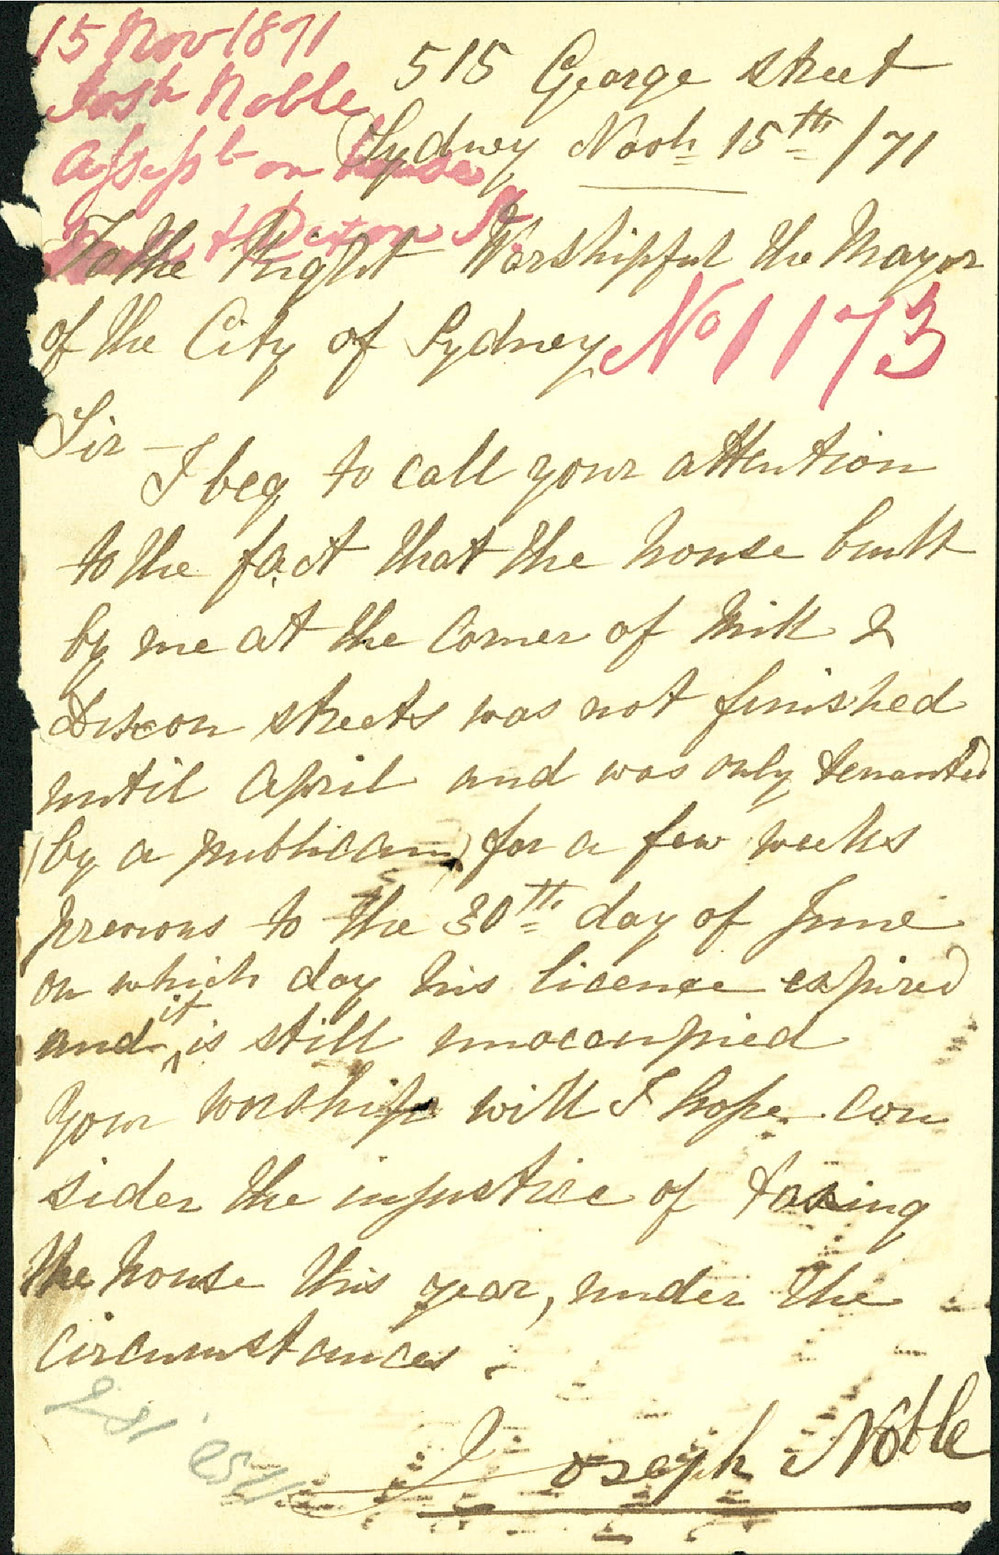 15 Nov 1871
Josh Noble
Assesst on house
& Dixon St
No 1173
515 George street
Sydney Novbr 15th /71
To the Right Worshipful the Mayor
of the City of Sydney
Sir –
I beg to call your attention
to the fact that the house built
by me at the corner of Milk &
Dixon streets was not finished
until April and was only tenanted
(by a publican) for a few weeks
previous to the 30th day of June
on which day his licence expired
and it is still unoccupied
Your worship will I hope con
sider the injustice of taxing
the house this year, under the
circumstances.
Joseph Noble